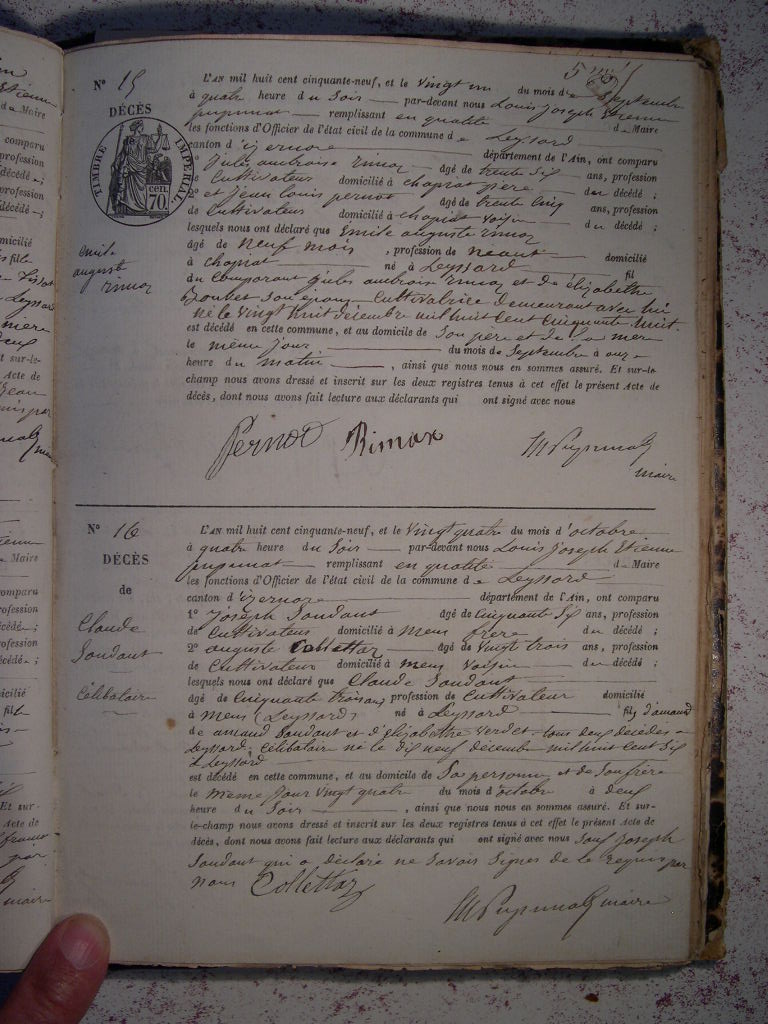 5
N° 15
DÉCÈS
TIMBRE IMPÉRIAL
70 CEN.
emile
auguste
rimox
L'AN mil huit cent cinquante-neuf, et le vingt un du mois de septembre
à quatre heure du soir par-devant nous Louis joseph Etienne
remplissant en qualité de Maire
les fonctions d'Officier de l'état civil de la commune de Leyssard
canton d'izernore département de l'Ain, ont comparu
1° jules ambroise rimox âgé de trente six ans, profession
de Cultivateur domicilié à chapiat père du décédé ;
2° et jean louis pernot âgé de trente cinq ans, profession
de Cultivateur domicilié à chapiat voisin du décédé ;
lesquels nous ont déclaré que Emile auguste rimox
âgé de neuf mois , profession de néant domicilié
à chapiat né à Leyssard fil
du comparant jules ambroise rimox et de élizabethe
Goubet son épouse Cultivatrice demeurant avec lui
né le vingt huit décembre mil huit cent cinquante huit.
est décédé en cette commune, et au domicile de son père et de sa mère
le même jour du mois de septembre à onze
heure du matin , ainsi que nous nous en sommes assuré. Et sur-le-
champ nous avons dressé et inscrit sur les deux registres tenus à cet effet le présent Acte de
décès, dont nous avons fait lecture aux déclarants qui ont signé avec nous
Pernot Rimox
maire
N° 16
DÉCÈS
de
Claude
Soudant
Célibataire
L'AN mil huit cent cinquante-neuf, et le vingt quatre du mois d'octobre
à quatre heure du soir par-devant nous Louis Joseph Etienne
remplissant en qualité de Maire
les fonctions d'Officier de l'état civil de la commune de Leyssard
canton d'izernore département de l'Ain, ont comparu
1° joseph Soudant âgé de cinquante six ans, profession
de Cultivateur domicilié à mens frère du décédé ;
2° auguste Collettaz âgé de vingt trois ans, profession
de Cultivateur domicilié à mens voisin du décédé ;
lesquels nous ont déclaré que Claude Soudant
âgé de cinquante trois ans, profession de Cultivateur domicilié
à mens (Leyssard) né à Leyssard fils d'amand
de amand Soudant et d'élizabethe verdet, tous deux décédés à
Leyssard, Célibataire né le dix neuf décembre mil huit cent six
à Leyssard
est décédé en cette commune, et au domicile de Sa personne et de son frère
le même jour vingt quatre du mois d'octobre à deux
heure du soir , ainsi que nous nous en sommes assuré. Et sur-
le-champ nous avons dressé et inscrit sur les deux registres tenus à cet effet le présent Acte de
décès, dont nous avons fait lecture aux déclarants qui ont signé avec nous sauf Joseph
Soudant qui a déclaré ne savoir signer de le requis par
nous Collettaz
maire